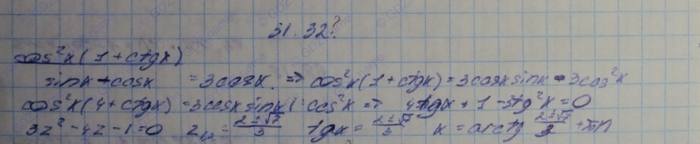 31.32?
cos²x(1+ctgx)
sinx+cosx = 3cosx ⇒ cos²x(1+ctgx) = 3cosx sinx - 3cos²x
cos²x(4+ctgx) = 3cosx sinx |: cos²x ⇒ 4tgx + 1 - 3tg²x = 0
3z² - 4z - 1 = 0 z₁,₂ = (2±√7)/3 tgx = (2±√7)/3 x = arctg (2±√7)/3 + πn